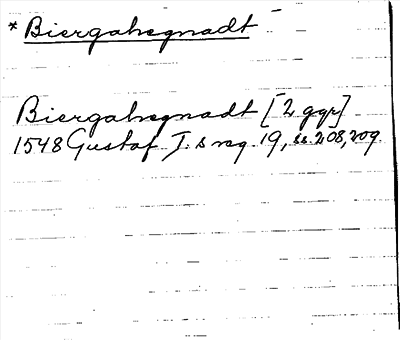 * Biergahegnadt
Biergahegnadt [2 ggr]
1548 Gustaf I. s reg. 19, ss. 208, 209